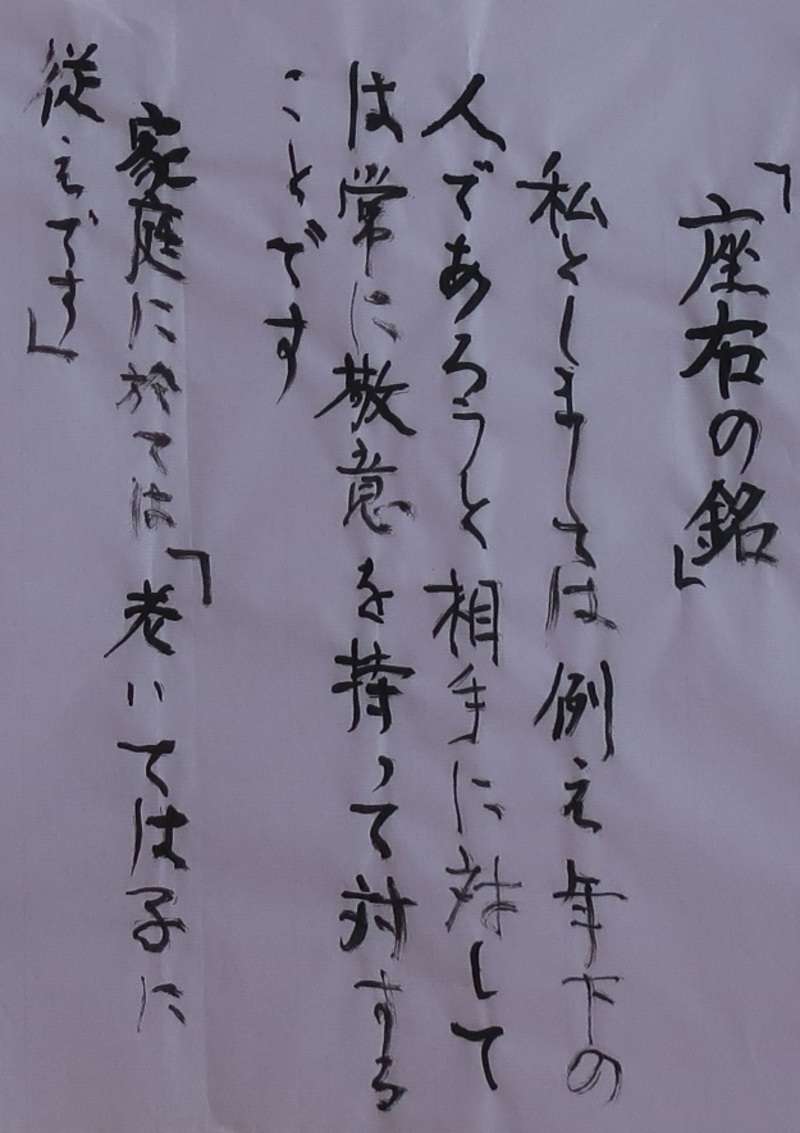 「座右の銘」
私としましては例え年下の
人であろうと相手に対して
は常に敬意を持って対する
ことです
家庭に於ては「老いては子に
従えです」